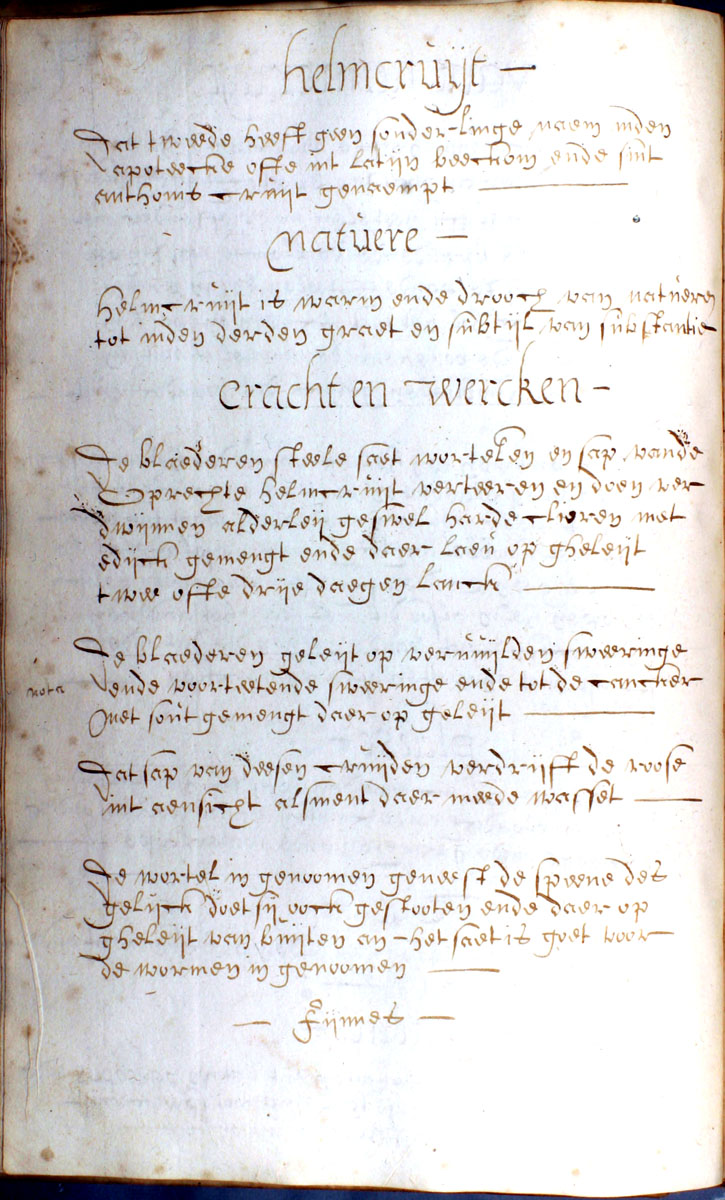 helmcruijt –
Dat tweede heeft geen sonderlinge naem inden
apoteecke ofte int latijn beeckom ende sint
anthonis cruijt genaempt
natuere –
helmcruijt is warm ende drooch van natueren
tot inden derden graet en subtijl van substantie
cracht en wercken –
De blaederen steele saet wortelen en sap vande
oprechte helmcruijt verteeren en doen ver
dwijnnen alderleij geswel harde clieren met
edijck gemengt ende daer laeu op gheleijt
twee ofte drije daegen lanck
De blaederen geleijt op veruuijlden sweeringe
nota ende voorteetende sweeringe ende tot de cancker
Met sout gemengt daer op geleijt
Dat sap van deesen cruijden verdrijft de roose
int aensicht alsment daer meede wasset
De wortel in genoomen geneest de speene des
gelijck doet sij oock gestooten ende daer op
gheleijt van buijten an – het saet is goet voor
de wormen in genoomen
– Fijnnes –